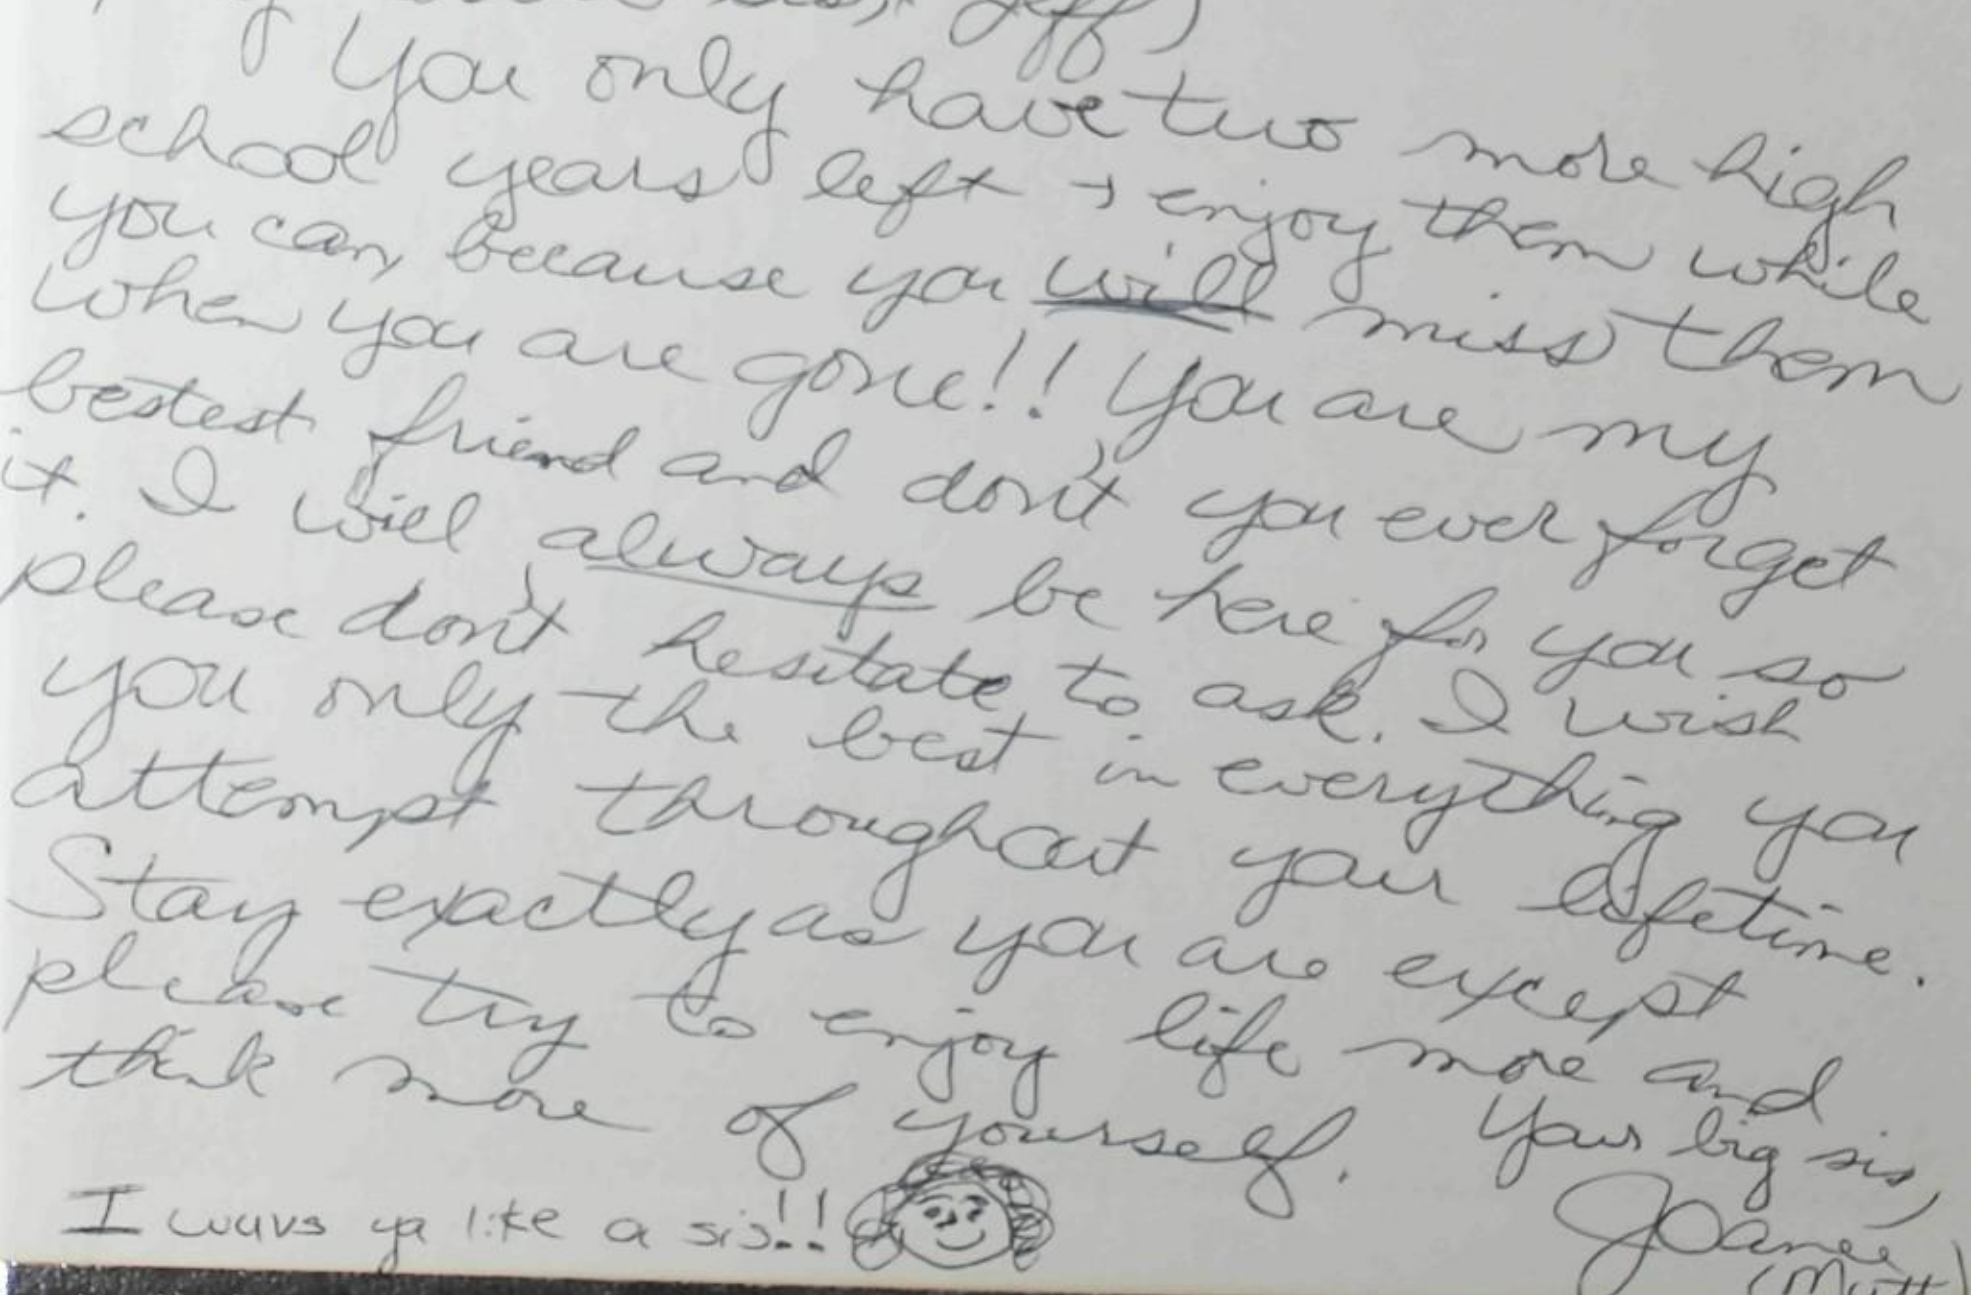 Jeff)
You only have two more high
school years left + enjoy them while
you can, because you will miss them
when you are gone!! You are my
bestest friend and don't you ever forget
it. I will always be here for you so
please don't hesitate to ask. I wish
you only the best in everything you
attempt throughout your lifetime.
Stay exactly as you are except
please try to enjoy life more and
think more of yourself.
Your big sis,
Joanee
(Mutt)
I wuvs ya like a sis!!